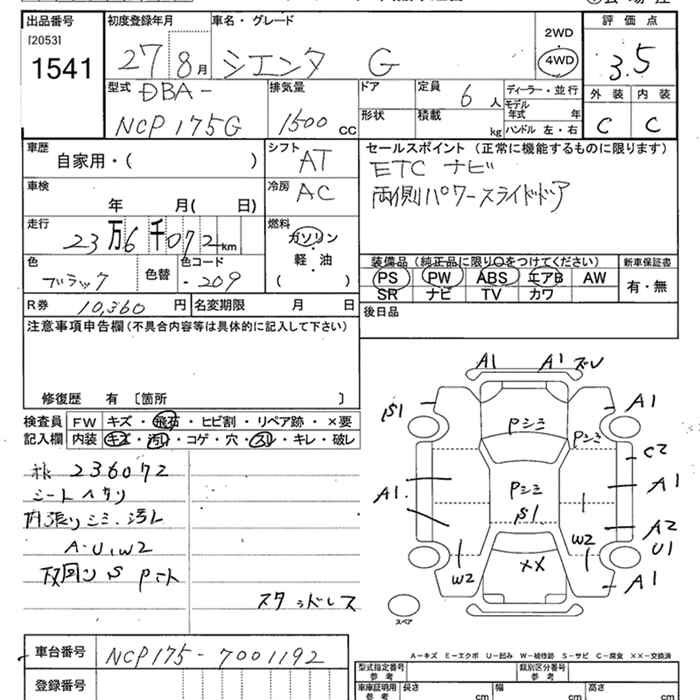 出品番号
[2053]
1541
初度登録年月
27 8月
車名・グレード
シエンタ G
2WD
4WD
評価点
3.5
外装 内装
C C
型式
DBA-
NCP175G
排気量
1500 cc
ドア
形状
定員
6人
積載
kg
ディーラー・並行
モデル
年式 年
ハンドル 左・右
車歴
自家用・( )
シフト
AT
車検
年 月( 日)
冷房
AC
走行
23万6千072km
燃料
ガソリン
軽・油
( )
色
ブラック
色替
色コード
・209
R券
10,360円
名変期限 月 日
セールスポイント(正常に機能するものに限ります)
ETC ナビ
両側パワースライドドア
装備品(純正品に限り○をつけてください)
PS PW ABS エアB AW
SR ナビ TV カワ
新車保証書
有・無
後日品
注意事項申告欄(不具合内容等は具体的に記入して下さい)
修復歴 有 〔箇所 〕
検査員
記入欄
FW キズ・飛石・ヒビ割・リペア跡・×要
内装 キズ・汚れ・コゲ・穴・スレ・キレ・破レ
236072
シートヘタリ
内張りシミ・汚レ
A・U、W2
スタッドレス
A1 A1 ズレ
S1 A1
Pシミ Pシミ
C2
A1 Pシミ A1
S1 A2
W2 U1
W2 ×× A1
スペア
A－キズ E－エクボ U－凹み W－補修跡 S－サビ C－腐食 ××－交換済
車台番号
NCP175-7001192
登録番号
型式指定番号
参考
類別区分番号
参考
車庫証明用
参考
長さ cm 幅 cm 高さ cm